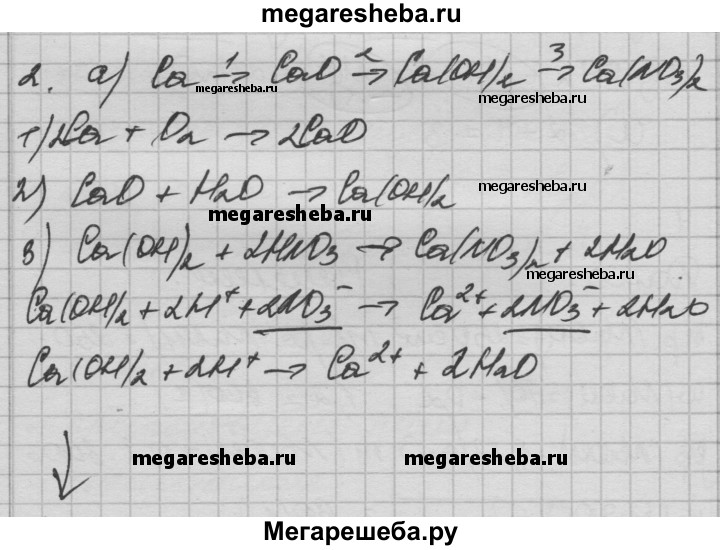 megaresheba.ru
2. а) Ca →¹ CaO →² Ca(OH)₂ →³ Ca(NO₃)₂
megaresheba.ru megaresheba.ru
1) 2Ca + O₂ → 2CaO
2) CaO + H₂O → Ca(OH)₂
megaresheba.ru
megaresheba.ru
3) Ca(OH)₂ + 2HNO₃ → Ca(NO₃)₂ + 2H₂O
megaresheba.ru
Ca(OH)₂ + 2H⁺ + 2NO₃⁻ → Ca²⁺ + 2NO₃⁻ + 2H₂O
Ca(OH)₂ + 2H⁺ → Ca²⁺ + 2H₂O
megaresheba.ru megaresheba.ru
Мегарешеба.ру